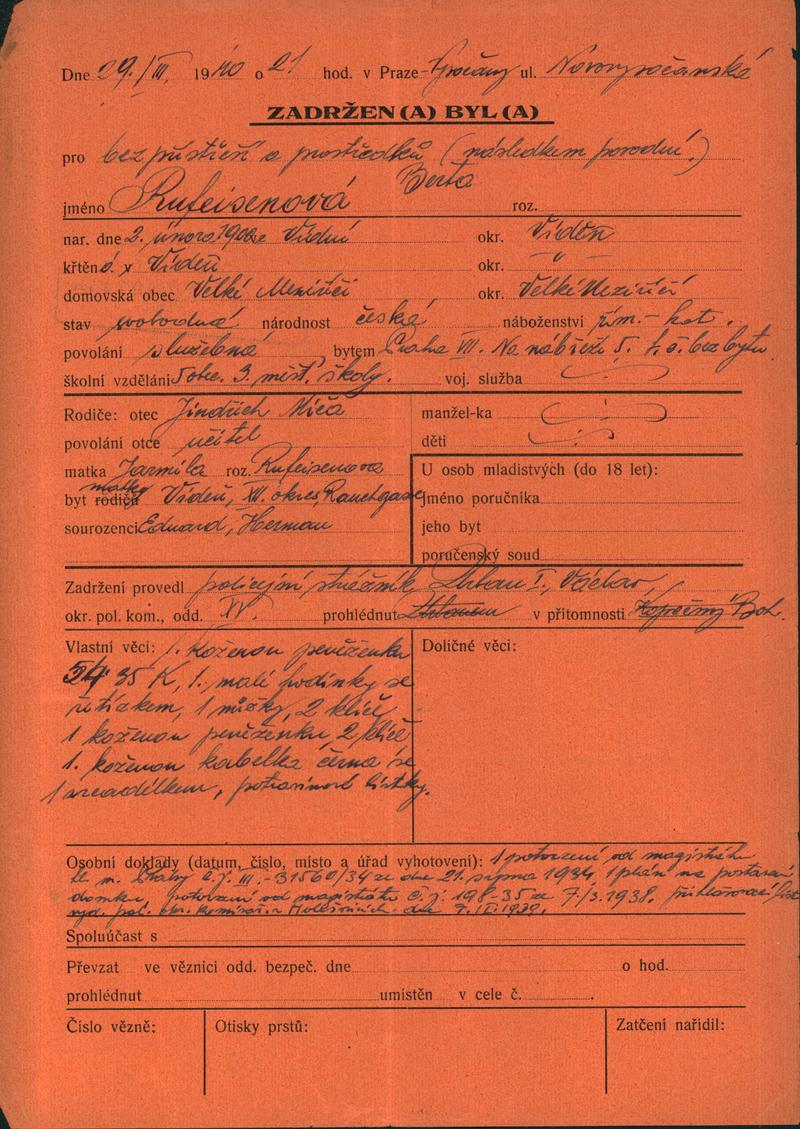 Dne 29./III. 1940 o 21 hod. v Praze-Vysočany ul. Novovysočanská
ZADRŽEN(A) BYL(A)
pro bez přístřeší a prostředků (následkem povodní.)
jméno Rufeisenová Berta roz.
nar. dne 2. února 1906 ve Vídni okr. Vídeň
křtěn ó. v Vídeň okr. - " -
domovská obec Velké Meziříčí okr. Velké Meziříčí
stav svobodná národnost česká náboženství řím. - kat.
povolání služebná bytem Praha VII. Na nábřeží 5. t. č. bez bytu
školní vzdělání 5 obec. 3. měšť. školy. voj. služba
Rodiče: otec Jindřich Míča manžel-ka
povolání otce učitel děti
matka Jarmila roz. Rufeisenova U osob mladistvých (do 18 let):
matky
byt rodičů Vídeň, XII. okres, jméno poručníka
sourozenci Eduard, Herman jeho byt
poručenský soud
Zadržení provedl policejní strážník Urban I. Václav
okr. pol. kom., odd. XV. prohlédnut Urbanem v přítomnosti Kopečný Boh.
Vlastní věci: 1. koženou peněženku Doličné věci:
54 35 K, 1. malé hodinky se
řetízkem, 1 nůžky, 2 klíče,
1 koženou peněženku, 2 klíče
1. koženou kabelka černá se
1 zrcadélkem, potravinové lístky.
Osobní doklady (datum, číslo, místo a úřad vyhotovení): 1 potvrzení od magistrátu
hl. m. Prahy č. j. III.-31560/34 ze dne 21. srpna 1934 1 plán na postavení
domku, potvrzení od magistrátu č. j. 198-35 ze 7/3. 1938. přihlašovací list
vyd. pol. okr. komisař. v Holešovicích dne
Spoluúčast s
Převzat ve věznici odd. bezpeč. dne o hod.
prohlédnut umístěn v cele č.
Číslo vězně: Otisky prstů: Zatčení nařídil: